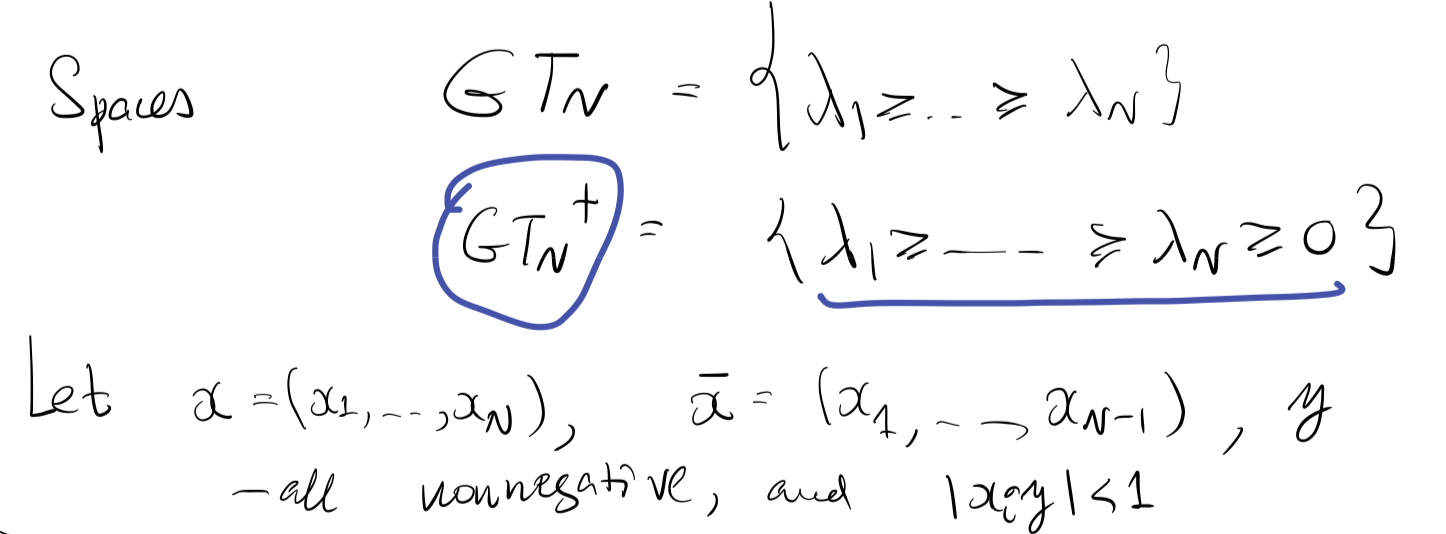 Spaces GT_N = {λ_1 ≥ .. ≥ λ_N}
GT_N^+ = {λ_1 ≥ --- ≥ λ_N ≥ 0}
Let x = (x_1, --, x_N), x̄ = (x_1, --, x_{N-1}), y
- all nonnegative, and |x_i y| < 1